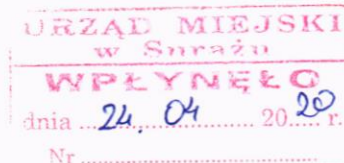 URZĄD MIEJSKI
w Surażu
WPŁYNĘŁO
dnia ...24. 04 ........ 20.20 r.
Nr ........................